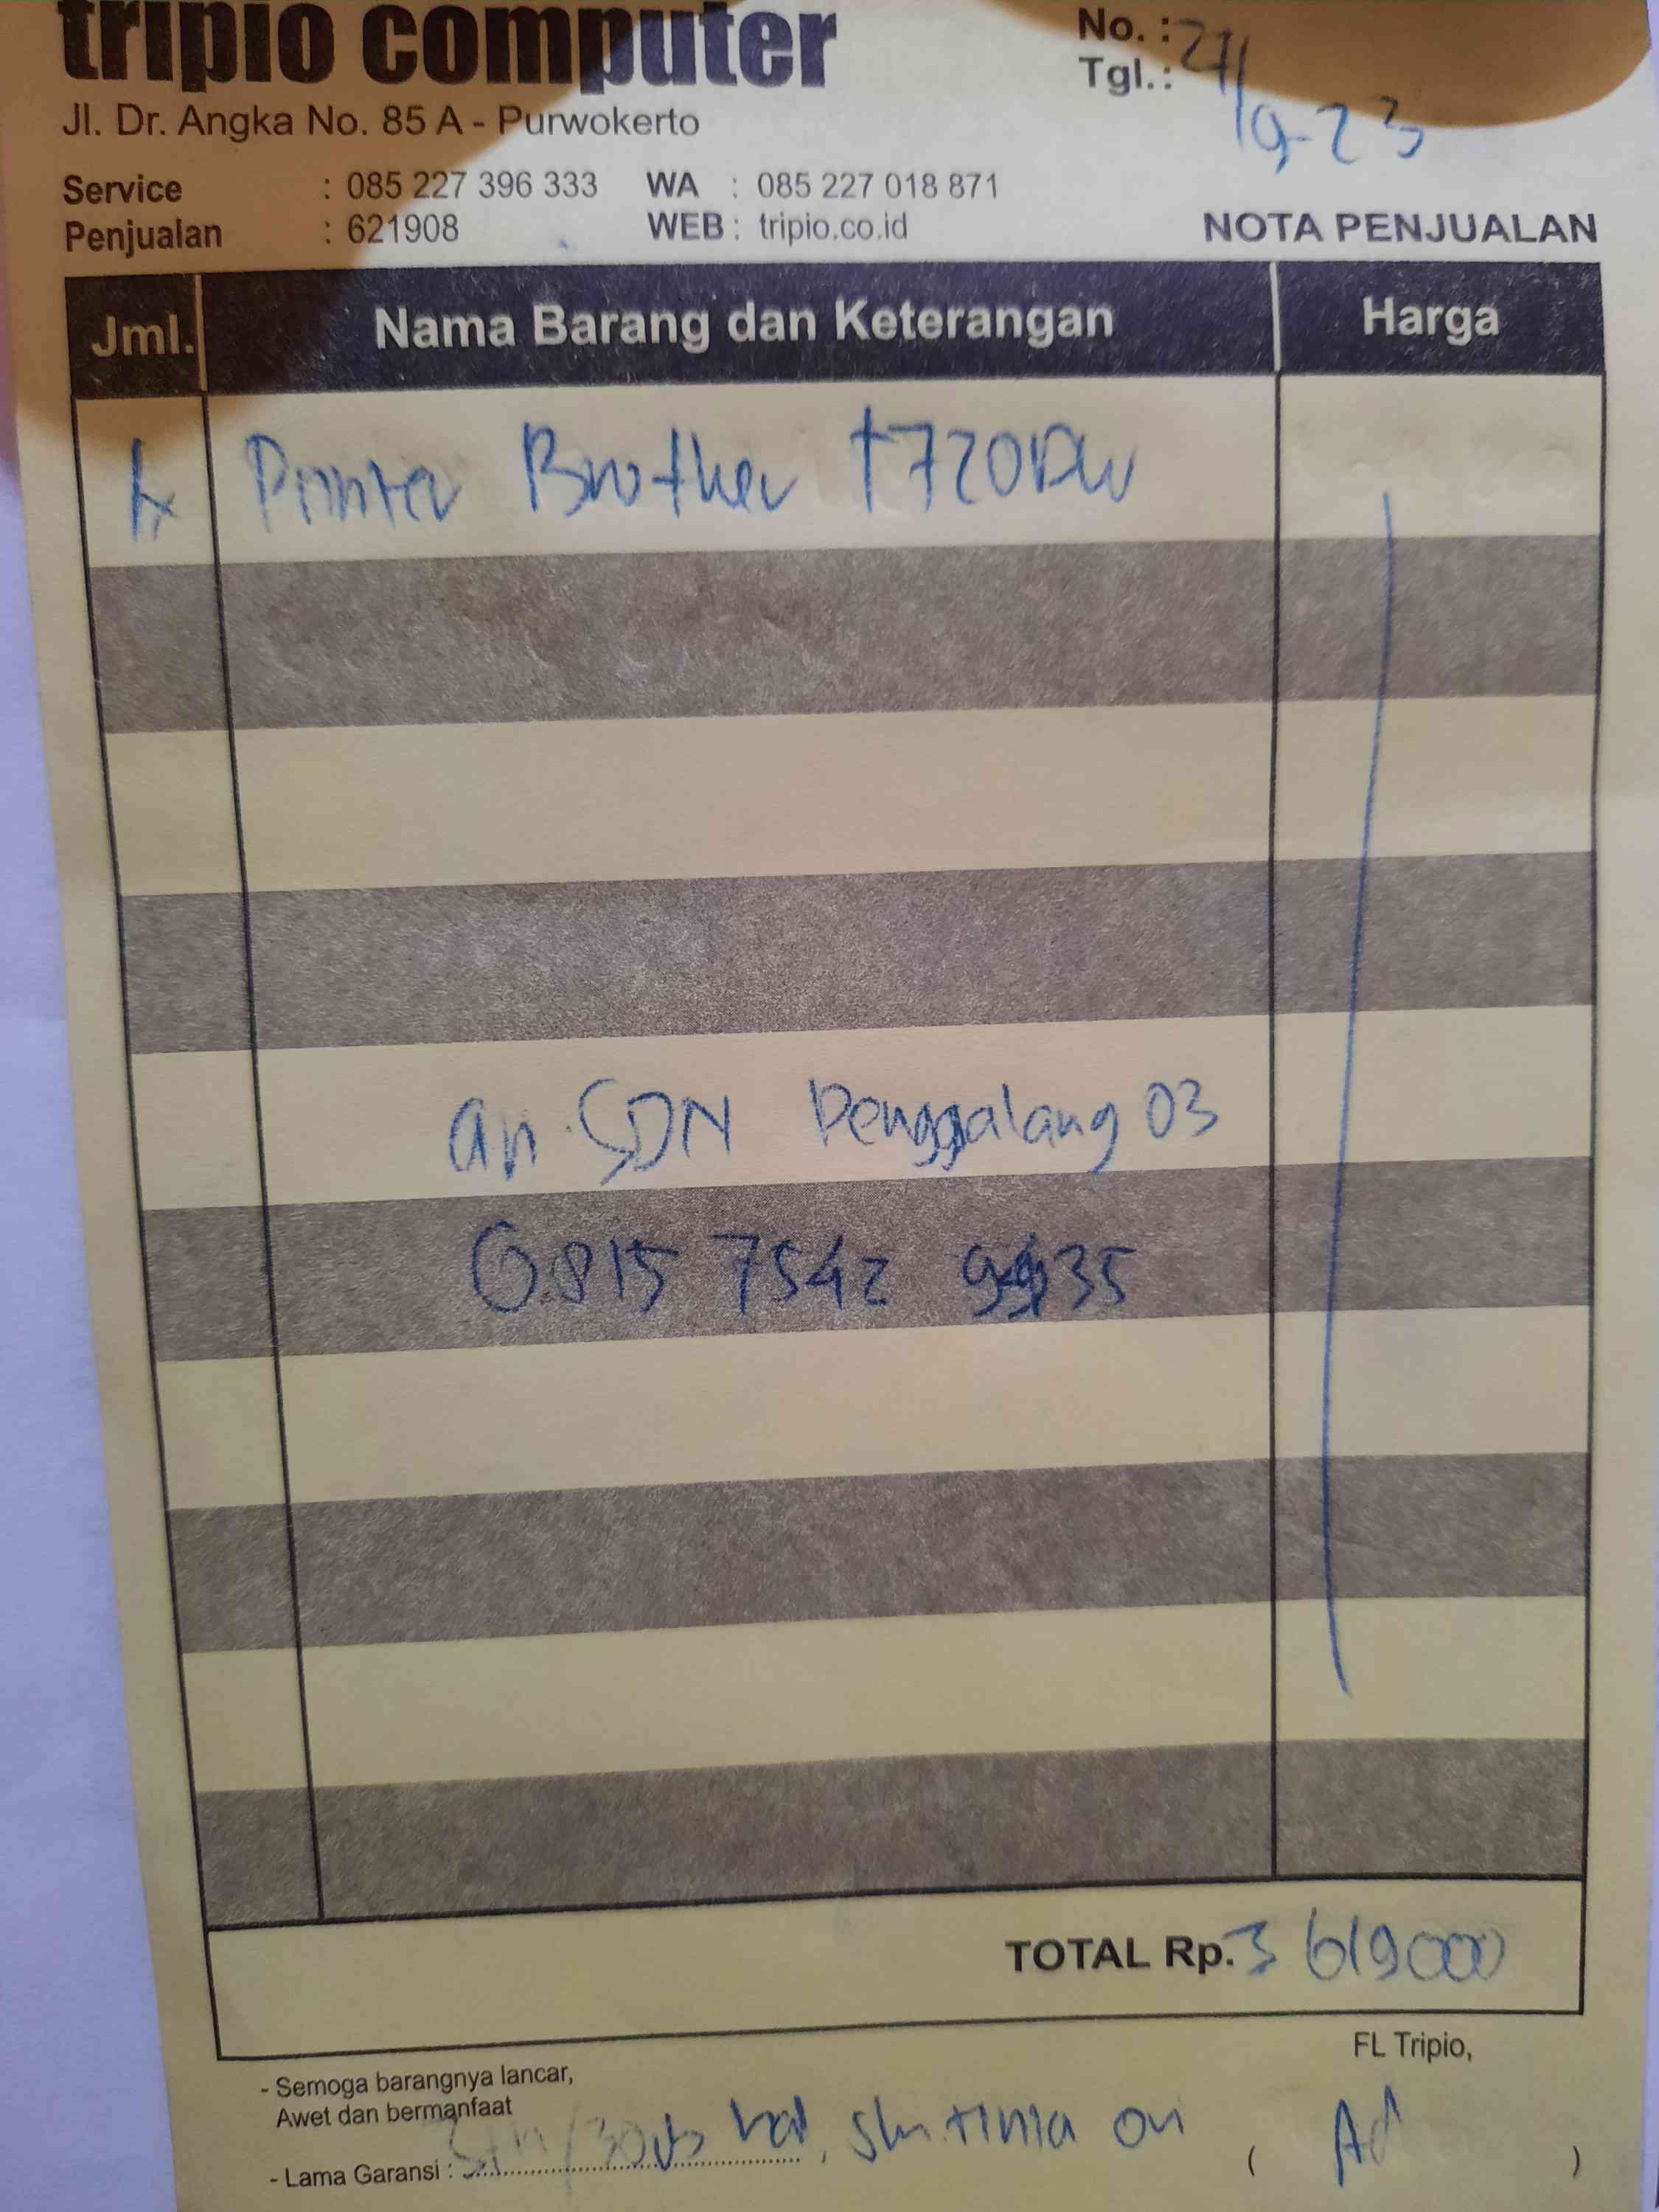 tripio computer
Jl. Dr. Angka No. 85 A - Purwokerto
Service : 085 227 396 333 WA : 085 227 018 871
Penjualan : 621908 WEB : tripio.co.id
No. :
Tgl. : 27/9-23
NOTA PENJUALAN
Jml. Nama Barang dan Keterangan Harga
1x Printer Brother T720DW
an. SDN Penggalang 03
0815 7542 35
TOTAL Rp. 3 619000
- Semoga barangnya lancar,
Awet dan bermanfaat
- Lama Garansi : 3th/30 , tinta ori
FL Tripio,
( Ad )